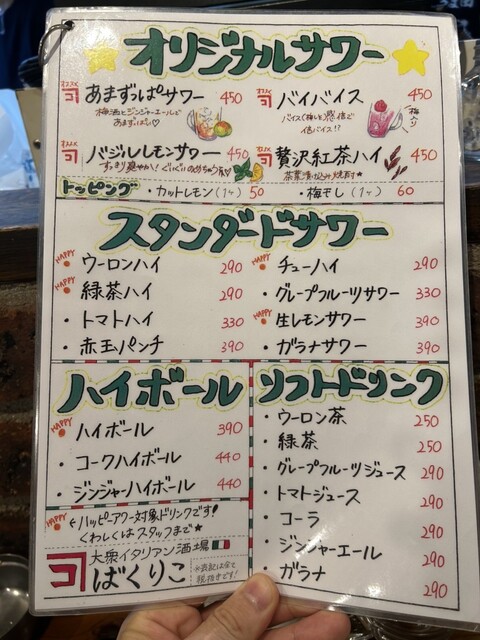 オリジナルサワー
オススメ あまずっぱサワー 450
梅酒とジンジャーエールで
あまずっぱい♡
オススメ バイバイス 450
バイス(梅しそ)感倍で
倍バイス!?
梅入り
オススメ バジルレモンサワー 450
すっきり爽やか!
オススメ 贅沢紅茶ハイ 450
茶葉漬け込み焼酎★
トッピング ・カットレモン(1ヶ) 50 ・梅干し(1ヶ) 60
スタンダードサワー
HAPPY ウーロンハイ 290
HAPPY 緑茶ハイ 290
・トマトハイ 330
・赤玉パンチ 390
・チューハイ 290
・グレープフルーツサワー 330
HAPPY 生レモンサワー 390
・ガラナサワー 390
ハイボール
HAPPY ハイボール 390
・コークハイボール 440
・ジンジャーハイボール 440
HAPPY ハッピーアワー対象ドリンクです!
くわしくはスタッフまで★
大衆イタリアン酒場
ばくりこ
※表記は全て
税抜きです!
ソフトドリンク
・ウーロン茶 250
・緑茶 250
・グレープフルーツジュース 290
・トマトジュース 290
・コーラ 290
・ジンジャーエール 290
・ガラナ 290